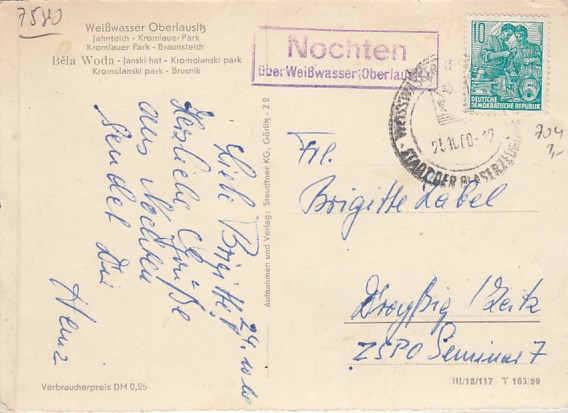 7580
Weißwasser Oberlausitz
Jahnteich - Kromlauer Park
Kromlauer Park - Braunsteich
Běła Woda - Janski hat - Kromolanski park
Kromolanski park - Brusnik
Nochten
über Weißwasser (Oberlausitz)
10
DEUTSCHE
DEMOKRATISCHE REPUBLIK
WEISSWASSER
STADT DER GLASERZEUGUNG
704
24.10.60
Liebe Brigitte!
Herzliche Grüße
aus Nochten
sendet Dir
Heinz
Aufnahmen und Verlag: Steudtner KG, Görlitz - Z 2
Frl.
Brigitte Zabel
Droyßig / Zeitz
ZSPO Seminar 7
Verbraucherpreis DM 0,25
III/18/117